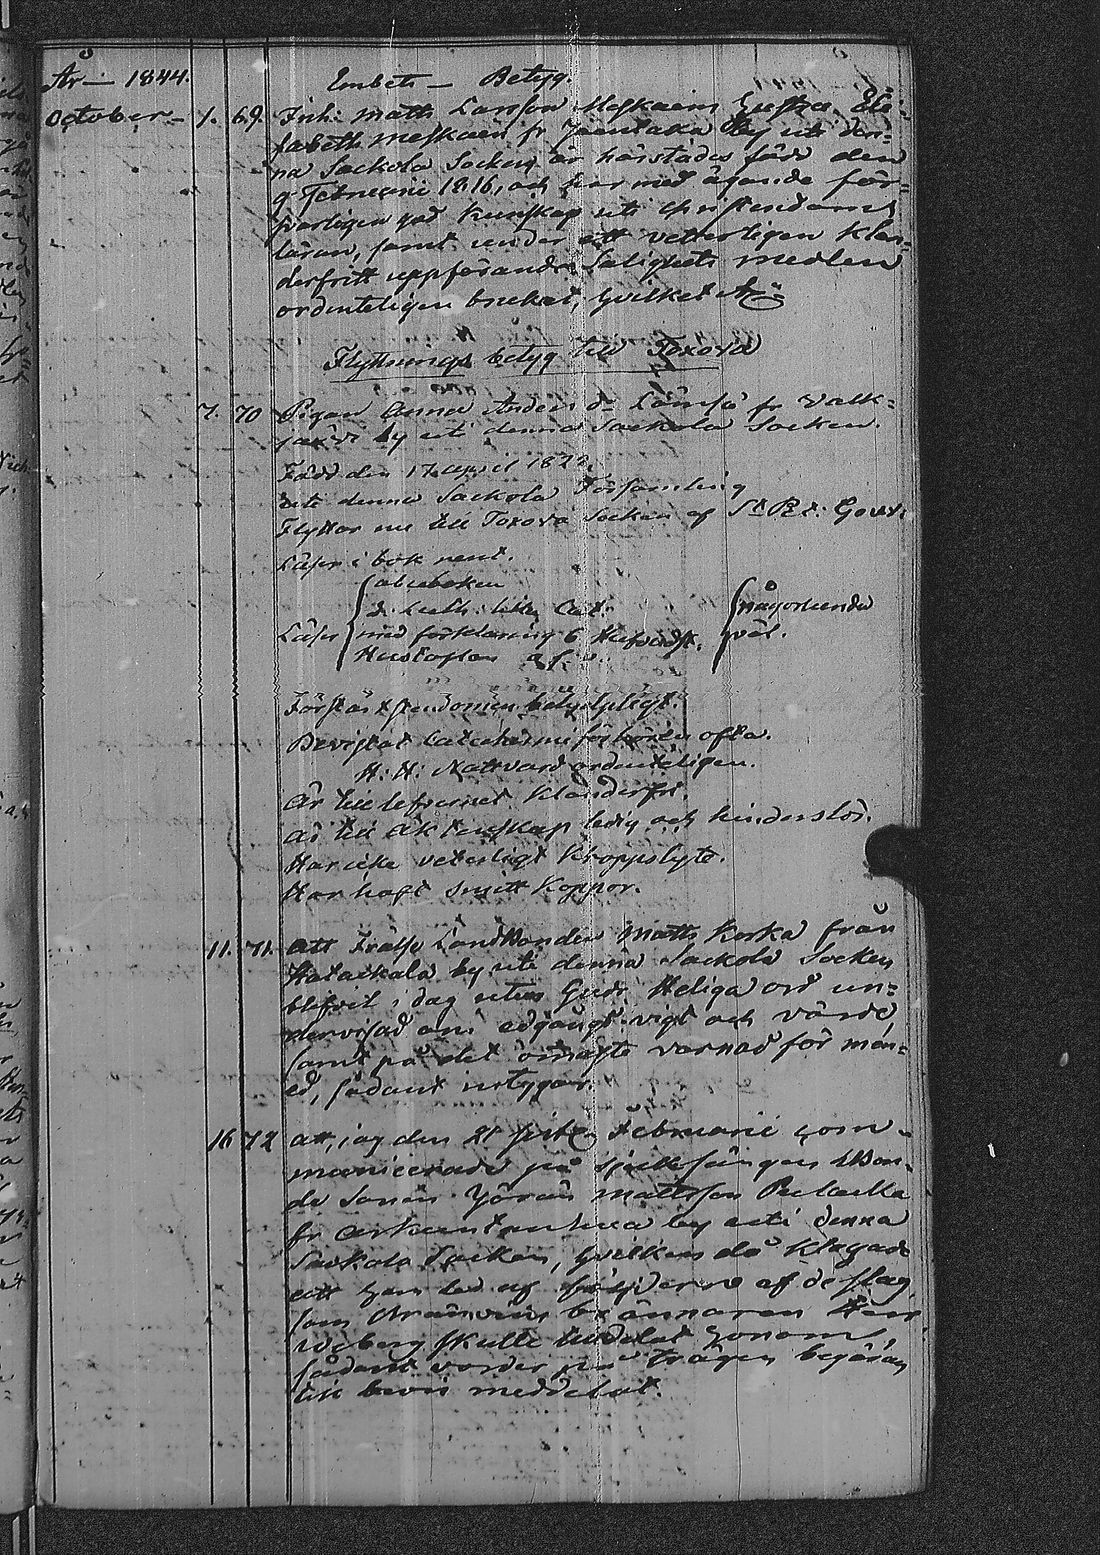 År – 1844. Embets – Betyg.
October – 1. 69. Inh: Matts Larsson Meskaein Hustru Eli-
sabeth Meskaein fr by uti den-
na Sackola Socken är härstädes född den
9 Februarii 1816, och har med ägande för-
svarligen god kunskap uti Christendoms
läran, samt under ett vetterligen klan-
derfritt uppförande Salighets medlen
ordenteligen brukat, hvilket
Flyttnings betyg till Toxova
7. 70 Pigan Anna Anders dr fr Valk-
järvi by uti denna Sackola Socken.
Född den 17 April 1822.
uti denna Sackola Församling
Flyttar nu till Toxova Socken af St. Pet: Gouv:
Läser i bok rent.
abcboken
D: Luth: lilla Cat:
Läser med förklaring 6 Hufvudst. någorlunda
Hustaflan väl.
Förstår Christendomen
Bevistat Catechismi förhören ofta.
H: H: Nattvard ordenteligen.
Är till lefvernet Klanderfri.
Är till Äktenskap ledig och hinderslös.
Har icke veterligt Kroppslyte.
Har haft Smitt Koppor.
11. 71. att Frälse Landbonden Matts Koska från
by uti denna Sackola Socken
blifvit i dag utur Guds Heliga ord un-
dervisad om edgångs vigt och värde
samt på det ömaste varnad för men-
ed, sådant intygar.
16 72 att jag den 21 Februarii com-
municerade på sjuksängen Bon-
de Sonen Jöran Mattsson
fr by uti denna
Sackola Socken, hvilken då klagade
att han led af af de slag
som brännaren
skulle tilldelat honom,
sådant varder på trägen begäran
till bevis meddelat.